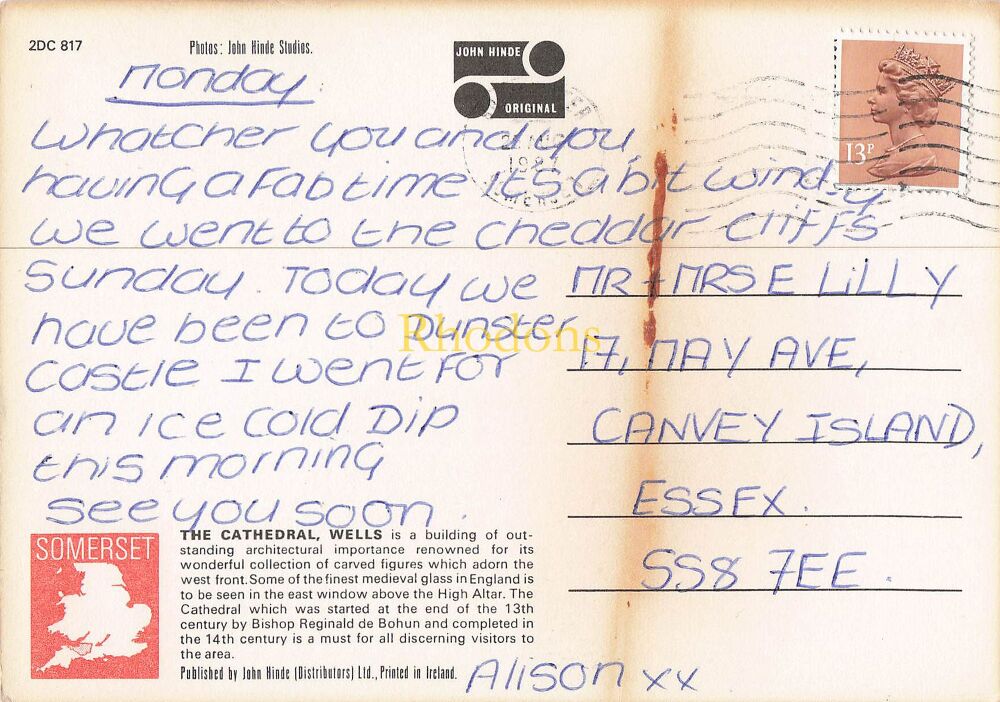 2DC 817
Photos: John Hinde Studios.
JOHN HINDE
ORIGINAL
13P
Monday
Whatcher you and you
having a fab time it's a bit windy
we went to the cheddar cliffs
Sunday. Today we
have been to Dunster
Castle I went for
an ice cold Dip
this morning
see you soon.
Alison xx
MR + MRS E LiLLY
17, MAY AVE,
CANVEY ISLAND,
ESSEX.
SS8 7EE.
Rhodons
SOMERSET
THE CATHEDRAL, WELLS is a building of out-
standing architectural importance renowned for its
wonderful collection of carved figures which adorn the
west front. Some of the finest medieval glass in England is
to be seen in the east window above the High Altar. The
Cathedral which was started at the end of the 13th
century by Bishop Reginald de Bohun and completed in
the 14th century is a must for all discerning visitors to
the area.
Published by John Hinde (Distributors) Ltd., Printed in Ireland.